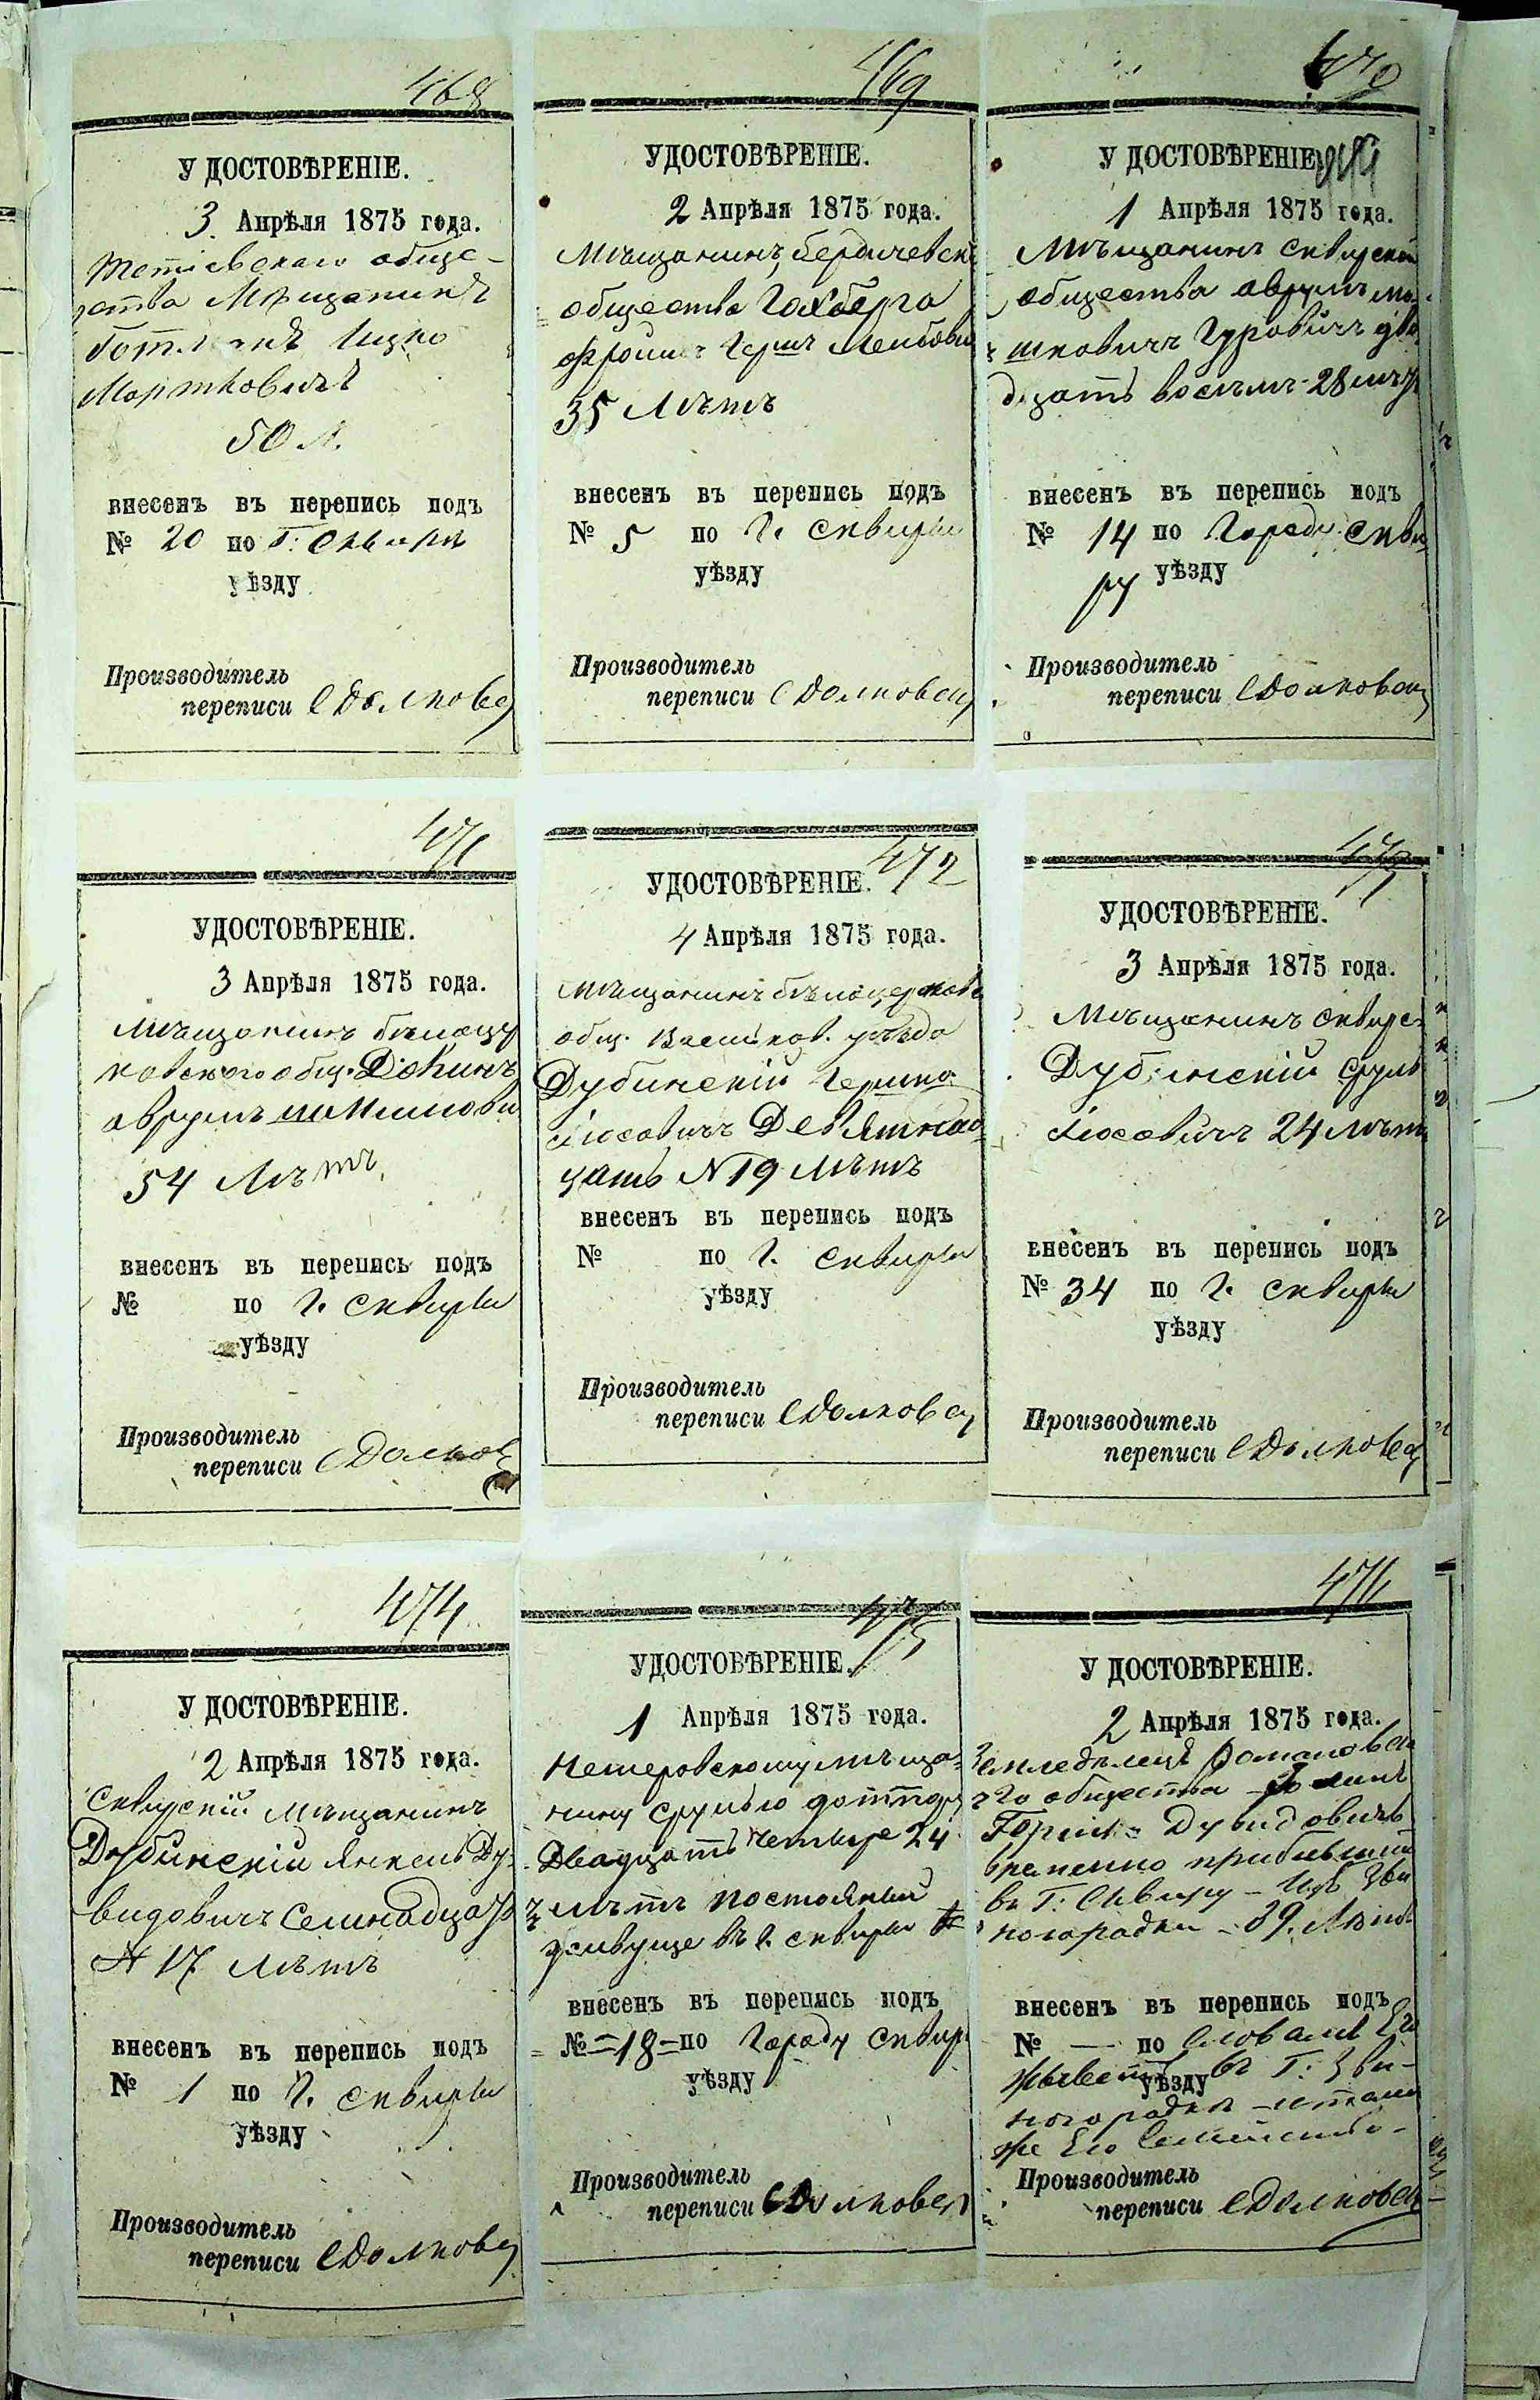 468
УДОСТОВѢРЕНІЕ.
3 Апрѣля 1875 года.
Тетіевскаго обще-
ства Мѣщанинъ
Ицко
Мортковичъ
50 л.
внесенъ въ перепись подъ
№ 20 по Г: Сквирѣ
уѣзду
Производитель
переписи СДолковец
469
УДОСТОВѢРЕНІЕ.
2 Апрѣля 1875 года.
Мѣщанинъ, бердичевск
общества Гохберга
Фроим Герш Лейбови
35 Лѣтъ
внесенъ въ перепись подъ
№ 5 по г. Сквиры
уѣзду
Производитель
переписи СДолковец
470
УДОСТОВѢРЕНІЕ
1 Апрѣля 1875 года.
Мѣщанинъ сквирскаи
общества аврумъ мо
шковичъ Гуровичъ два
дцать восемъ 28 лѣтъ
внесенъ въ перепись подъ
№ 14 по Городу Скви
ру уѣзду
Производитель
переписи СДолковец
471
УДОСТОВѢРЕНІЕ.
3 Апрѣля 1875 года.
Мѣщанинъ бѣлоцер
ковского общ. Докинъ
аврумъ
54 Лѣтъ
внесенъ въ перепись подъ
№ по г. Сквиры
уѣзду
Производитель
переписи СДолков
472
УДОСТОВѢРЕНІЕ.
4 Апрѣля 1875 года.
Мѣщанинъ бѣлоцеркове
общ. Васильков. уѣзда
Дубинскій Гершко
Іосовичъ Девятнад
цать N19 Лѣтъ
внесенъ въ перепись подъ
№ по г. Сквиры
уѣзду
Производитель
переписи СДолковец
473
УДОСТОВѢРЕНІЕ.
3 Апрѣля 1875 года.
Мѣщанинъ Сквирс
Дубинскій Сруль
Іосовичъ 24 лѣтъ
внесенъ въ перепись подъ
№ 34 по г. Сквиры
уѣзду
Производитель
переписи СДолковец
474
УДОСТОВѢРЕНІЕ.
2 Апрѣля 1875 года.
Сквирскій Мѣщанинъ
Дубинскій Янкель Ду
видовичъ Семнадцать
N 17 Лѣтъ
внесенъ въ перепись подъ
№ 1 по г. Сквиры
уѣзду
Производитель
переписи СДолковец
475
УДОСТОВѢРЕНІЕ.
1 Апрѣля 1875 года.
мѣща-
нину Срулью
Двадцать Четыре 24
лѣтъ постояный
живуще въ г. Сквиры
внесенъ въ перепись подъ
№ = 18 = по Городу Сквир
уѣзду
Производитель
переписи СДолковец
476
УДОСТОВѢРЕНІЕ.
2 Апрѣля 1875 года.
Земледѣлецъ Романовск
го общества
Гершк= Дувидовичъ
временно прибывшій
въ Г: Сквиру – Изъ Зве
ногородки – 39. Лѣтъ
внесенъ въ перепись подъ
№ — по Словамъ Его
уѣзду въ Г: Зве-
ногородкѣ – и также
же Его Семейство –
Производитель
переписи СДолковец